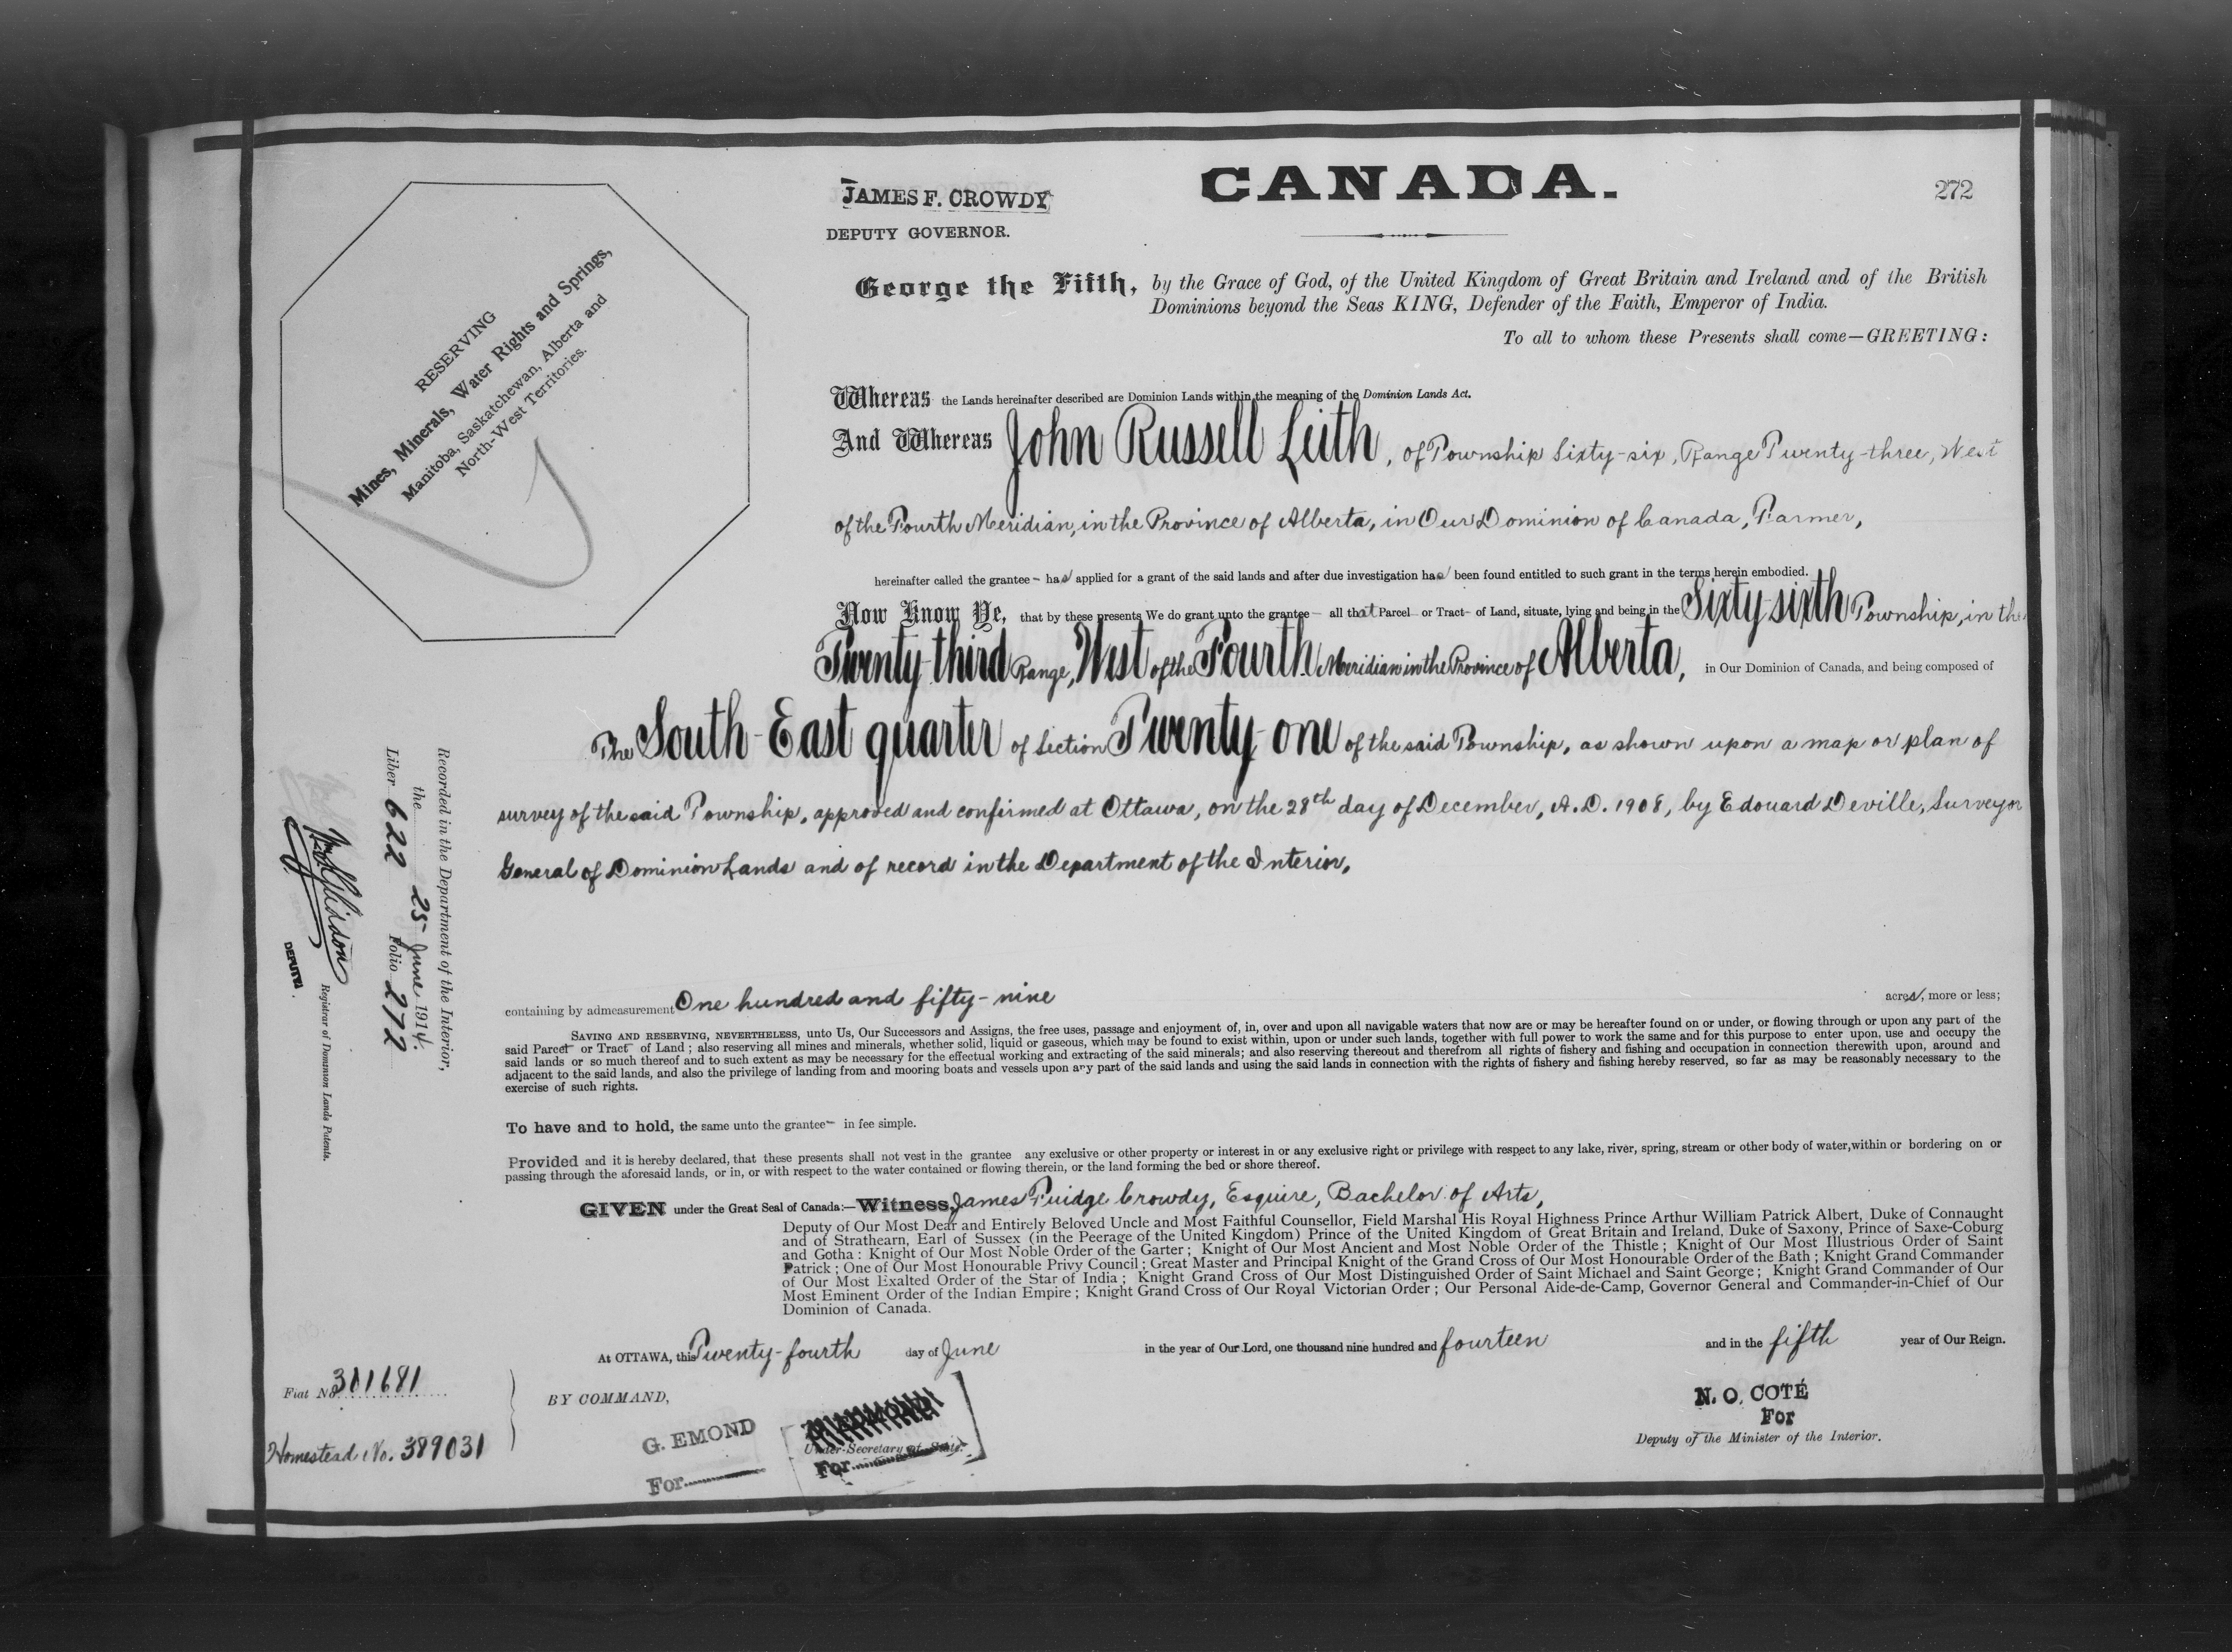 CANADA.
272
JAMES F. CROWDY
DEPUTY GOVERNOR.
George the Fifth, by the Grace of God, of the United Kingdom of Great Britain and Ireland and of the British
Dominions beyond the Seas KING, Defender of the Faith, Emperor of India.
To all to whom these Presents shall come—GREETING:
RESERVING
Mines, Minerals, Water Rights and Springs,
Manitoba, Saskatchewan, Alberta and
North-West Territories.
Whereas the Lands hereinafter described are Dominion Lands within the meaning of the Dominion Lands Act.
And Whereas John Russell Leith, of Township Sixty-six, Range Twenty-three, West
of the Fourth Meridian, in the Province of Alberta, in Our Dominion of Canada, Farmer,
hereinafter called the grantee - has applied for a grant of the said lands and after due investigation has been found entitled to such grant in the terms herein embodied.
Now Know Ye, that by these presents We do grant unto the grantee - all that Parcel - or Tract - of Land, situate, lying and being in the Sixty-sixth Township, in the
Twenty-third Range, West of the Fourth Meridian in the Province of Alberta, in Our Dominion of Canada, and being composed of
The South-East quarter of Section Twenty-one of the said Township, as shown upon a map or plan of
survey of the said Township, approved and confirmed at Ottawa, on the 28th day of December, A.D. 1908, by Edouard Deville, Surveyor
General of Dominion Lands and of record in the Department of the Interior,
Recorded in the Department of the Interior,
the 25 June 1914.
Liber 622 Folio 272
Registrar of Dominion Lands Patents.
DEPUTY
containing by admeasurement One hundred and fifty-nine acres, more or less;
SAVING AND RESERVING, NEVERTHELESS, unto Us, Our Successors and Assigns, the free uses, passage and enjoyment of, in, over and upon all navigable waters that now are or may be hereafter found on or under, or flowing through or upon any part of the
said Parcel - or Tract - of Land; also reserving all mines and minerals, whether solid, liquid or gaseous, which may be found to exist within, upon or under such lands, together with full power to work the same and for this purpose to enter upon, use and occupy the
said lands or so much thereof and to such extent as may be necessary for the effectual working and extracting of the said minerals; and also reserving thereout and therefrom all rights of fishery and fishing and occupation in connection therewith upon, around and
adjacent to the said lands, and also the privilege of landing from and mooring boats and vessels upon any part of the said lands and using the said lands in connection with the rights of fishery and fishing hereby reserved, so far as may be reasonably necessary to the
exercise of such rights.
To have and to hold, the same unto the grantee - in fee simple.
Provided and it is hereby declared, that these presents shall not vest in the grantee any exclusive or other property or interest in or any exclusive right or privilege with respect to any lake, river, spring, stream or other body of water, within or bordering on or
passing through the aforesaid lands, or in, or with respect to the water contained or flowing therein, or the land forming the bed or shore thereof.
GIVEN under the Great Seal of Canada:—Witness, James Fuidge Crowdy, Esquire, Bachelor of Arts,
Deputy of Our Most Dear and Entirely Beloved Uncle and Most Faithful Counsellor, Field Marshal His Royal Highness Prince Arthur William Patrick Albert, Duke of Connaught
and of Strathearn, Earl of Sussex (in the Peerage of the United Kingdom) Prince of the United Kingdom of Great Britain and Ireland, Duke of Saxony, Prince of Saxe-Coburg
and Gotha: Knight of Our Most Noble Order of the Garter; Knight of Our Most Ancient and Most Noble Order of the Thistle; Knight of Our Most Illustrious Order of Saint
Patrick; One of Our Most Honourable Privy Council; Great Master and Principal Knight of the Grand Cross of Our Most Honourable Order of the Bath; Knight Grand Commander
of Our Most Exalted Order of the Star of India; Knight Grand Cross of Our Most Distinguished Order of Saint Michael and Saint George; Knight Grand Commander of Our
Most Eminent Order of the Indian Empire; Knight Grand Cross of Our Royal Victorian Order; Our Personal Aide-de-Camp, Governor General and Commander-in-Chief of Our
Dominion of Canada.
At OTTAWA, this Twenty-fourth day of June in the year of Our Lord, one thousand nine hundred and fourteen and in the fifth year of Our Reign.
Fiat No 301681
Homestead No. 389031
BY COMMAND,
G. EMOND
For
Under-Secretary of State.
For
N. O. COTÉ
For
Deputy of the Minister of the Interior.